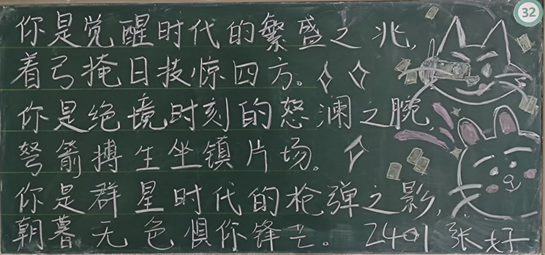 你是觉醒时代的繁盛之兆，
着弓掩日技惊四方。
你是绝境时刻的怒澜之腕，
弩箭搏生坐镇片场。
你是群星时代的枪弹之影，
朝暮无色惧你锋芒。2401张好
32